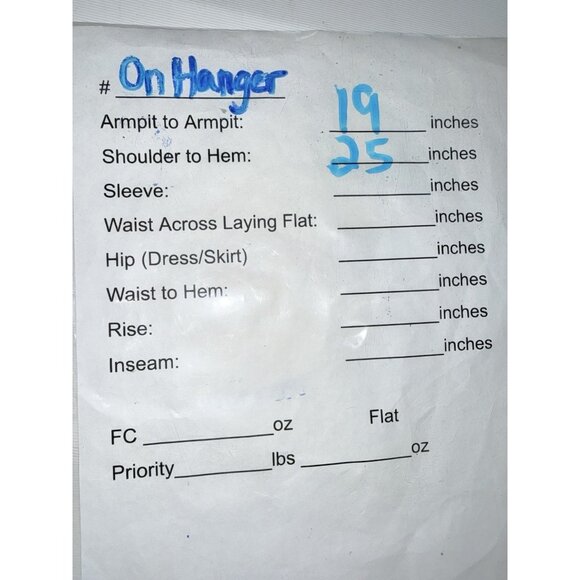 # On Hanger
Armpit to Armpit: 19 inches
Shoulder to Hem: 25 inches
Sleeve: inches
Waist Across Laying Flat: inches
Hip (Dress/Skirt) inches
Waist to Hem: inches
Rise: inches
Inseam: inches
FC oz Flat
Priority lbs oz